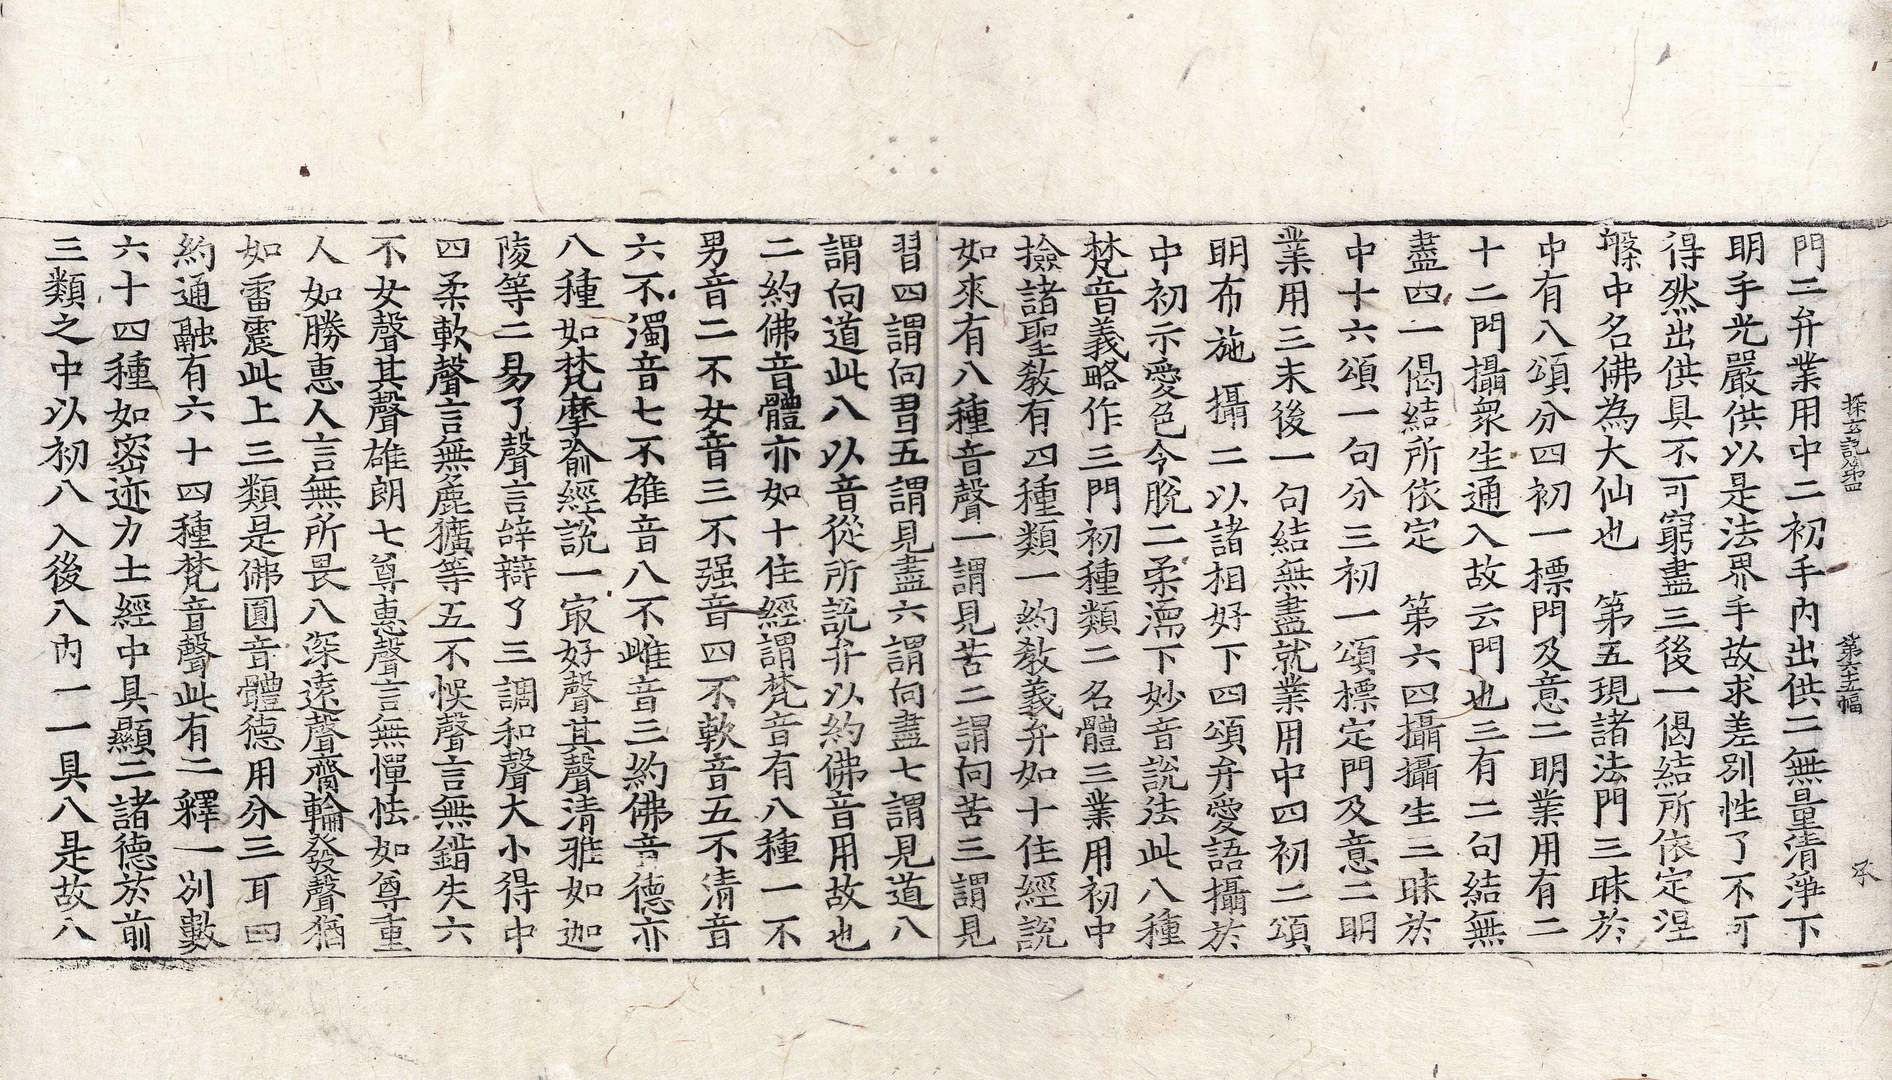 探玄記第四　第六十五幅　丞
門三弁業用中二初手内出供二無量清淨下
明手光嚴供以是法界手故求差別性了不可
得然出供具不可窮盡三後一偈結所依定涅
槃中名佛為大仙也　第五現諸法門三昧於
中有八頌分四初一標門及意二明業用有二
十二門攝衆生通入故云門也三有二句結無
盡四一偈結所依定　第六四攝攝生三昧於
中十六頌一句分三初一頌標定門及意二明
業用三末後一句結無盡就業用中四初二頌
明布施攝二以諸相好下四頌弁愛語攝於
中初示愛色令脫二柔濡下妙音說法此八種
梵音義略作三門初種類二名體三業用初中
撿諸聖教有四種類一約教義弁如十住經說
如來有八種音聲一謂見苦二謂向苦三謂見
習四謂向習五謂見盡六謂向盡七謂見道八
謂向道此八以音從所說弁以約佛音用故也
二約佛音體亦如十住經謂梵音有八種一不
男音二不女音三不强音四不軟音五不清音
六不濁音七不雄音八不雌音三約佛音德亦
八種如梵摩喻經說一㝡好聲其聲清雅如迦
陵等二易了聲言辞辯了三調和聲大小得中
四柔軟聲言無麁獷等五不悞聲言無錯失六
不女聲其聲雄朗七尊惠聲言無憚怯如尊重
人如勝惠人言無所畏八深遠聲齊輪發聲猶
如雷震此上三類是佛圓音體德用分三耳四
約通融有六十四種梵音聲此有二釋一別數
六十四種如密迹力士經中具顯二諸德於前
三類之中以初八入後八内一一具八是故八